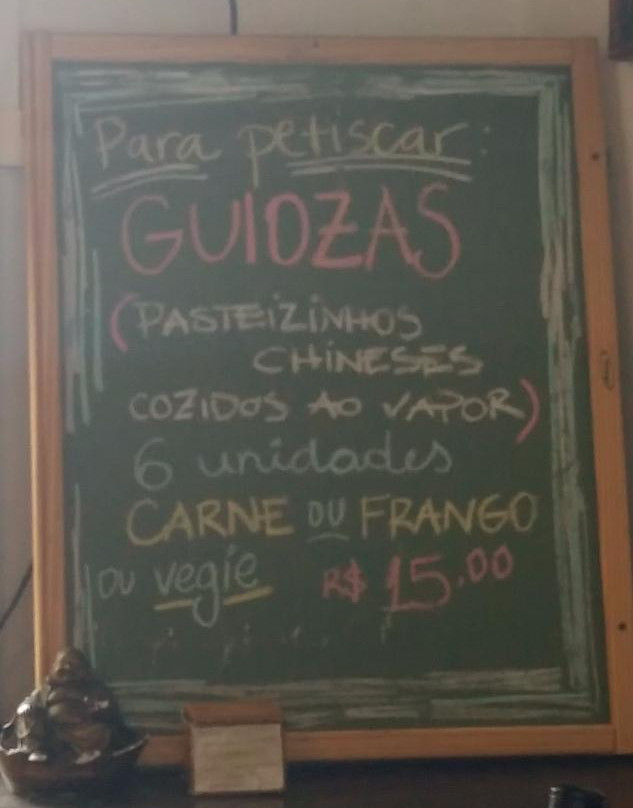 Para petiscar:
GUIOZAS
(PASTEIZINHOS
CHINESES
COZIDOS AO VAPOR)
6 unidades
CARNE OU FRANGO
OU vegie R$ 15.00